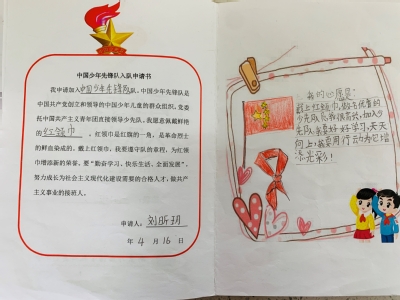 中国少年先锋队入队申请书
我申请加入中国少年先锋队,中国少年先锋队是
中国共产党创立和领导的中国少年儿童的群众组织,党委
托中国共产主义青年团直接领导少先队,我愿意佩戴鲜艳
的红领巾。红领巾是红旗的一角,是革命烈士
的鲜血染成的。戴上红领巾,我要遵守队的章程,为红领
巾增添新的荣誉,要“勤奋学习、快乐生活、全面发展”,
努力成长为社会主义现代化建设需要的合格人才,做共产
主义事业的接班人。
申请人:刘昕玥
年 4 月 16 日
我的心愿是:
戴上红领巾,做名优秀的
少先队员我很高兴,加入少
先队,我要好好学习,天天
向上,我要用行动为它增
添光彩!